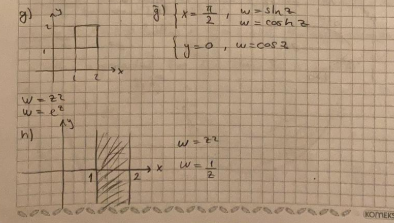 g) y
2
1
1 2 x
w = z²
w = e^z
ğ) { x = π/2 , w = sin z
w = cosh z
{ y = 0 , w = cos z
h) y
1 2 x
w = z²
w = 1/z
KOMEKS